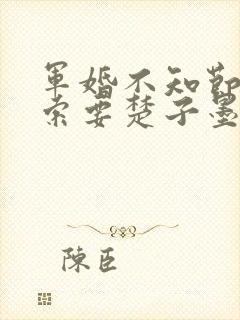 軍婚不知節
索要楚子墨
陳臣